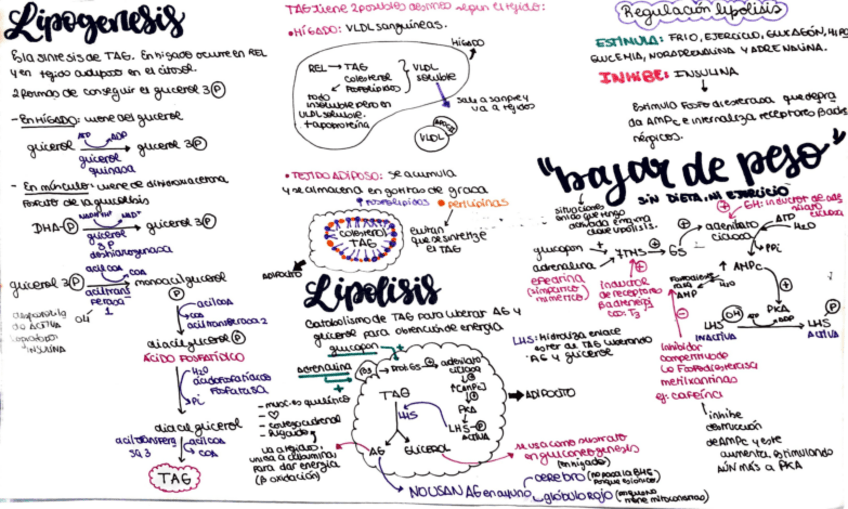 Lipogenesis
Es la síntesis de TAG. En hígado ocurre en REL
y en tejido adiposo en el citosol.
2 formas de conseguir el glicerol 3 P
- En hígado: viene del glicerol
glicerol ATP ADP glicerol 3 P
glicerol
quinasa
- En músculo: viene de dihidroxiacetona
fosfato de la glucólisis
DHA-P NADH+H+ NAD+ glicerol 3 P
glicerol
3 P
deshidrogenasa
glicerol 3 P acil CoA CoA monoacilglicerol
P
aciltrans
ferasa
1
OH
INSULINA
acil CoA
CoA
aciltransferasa 2
diacilglicerol P
ÁCIDO FOSFATÍDICO
H2O
ácido fosfatídico
fosfatasa
Pi
diacilglicerol
aciltransfera
sa 3
acil CoA
CoA
TAG
TAG tiene 2 posibles destinos según el tejido:
• HÍGADO: VLDL sanguíneas.
HÍGADO
REL → TAG
colesterol
fosfolípidos
VLDL
soluble
todo
insoluble pero en
VLDL soluble.
+ apoproteína
sale a sangre y
va a tejidos
APOC2
VLDL
• TEJIDO ADIPOSO: se acumula
y se almacena en gotitas de grasa
fosfolípidos perilipinas
colesterol
TAG
evitan
que se sintetize
el TAG
ADIPOCITO
Lipolisis
Catabolismo de TAG para liberar AG y
glicerol para obtención de energía
glucagon
adrenalina
Prot Gs
adenilato
ciclasa
[AMPc]
PKA
LHS-P
ACTIVA
TAG
LHS
AG
GLICEROL
ADIPOCITO
LHS: Hidroliza enlace
ester de TAG liberando
AG y glicerol
- musc. esquelético
- ♡
- corteza adrenal
- Hígado
va a tejidos,
unido a albúmina
para dar energía
(β oxidación)
se usa como sustrato
en gluconeogenesis
(en hígado)
NO USAN AG en ayuno
cerebro (no pasa la BHE
porque es iónico)
glóbulo rojo (porque no
tiene mitocondrias)
Regulación lipolisis
ESTIMULA: FRIO, EJERCICIO, GLUCAGÓN, HIPO
GLICEMIA, NORADRENALINA Y ADRENALINA.
INHIBE: INSULINA
Estimula fosfodiesterasa que degra
da AMPc e internaliza receptores βadre
nérgicos.
"bajar de peso"
SIN DIETA NI EJERCICIO
situaciones
en las que tengo
activada enzima
clave lipolisis.
GH: inductor de ade
nilato
ciclasa
glucagon
adrenalina
7TMS
Gs
adenilato
ciclasa
ATP
H2O
PPi
↑ AMPc
efedrina
(simpatico
mimético)
inductor
de receptores
βadrenérgi
cos: T3
Fosfodieste
rasa
H2O
AMP
PKA
OH
LHS
INACTIVA
ATP
ADP
P
LHS
ACTIVA
inhibidor
competitivo de
la fosfodiesterasa
metilxantinas
ej: cafeína
inhibe
destrucción
de AMPc y este
aumenta, estimulando
AÚN MÁS a PKA